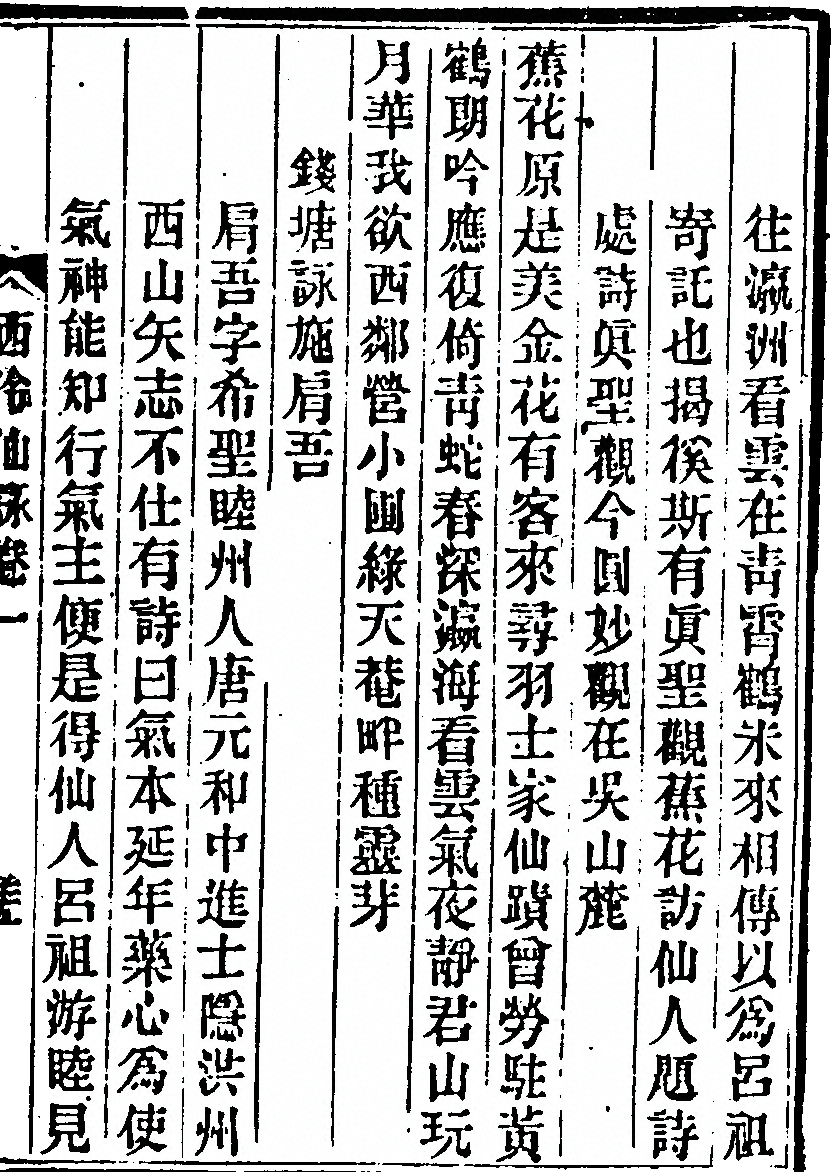 往瀛洲看雲在青霄鶴未來相傳以爲呂祖
寄託也揭徯斯有眞聖觀蕉花訪仙人題詩
處詩眞聖觀今圓妙觀在吳山麓
蕉花原是美金花有客來尋羽士家仙蹟曾勞駐黃
鶴期吟應復倚青蛇春深瀛海看雲氣夜靜君山玩
月華我欲西鄰營小圃綠天菴畔種靈芽
錢塘詠施肩吾
肩吾字希聖睦州人唐元和中進士隱洪州
西山矢志不仕有詩曰氣本延年藥心爲使
氣神能知行氣主便是得仙人呂祖游睦見
西泠仙詠卷一